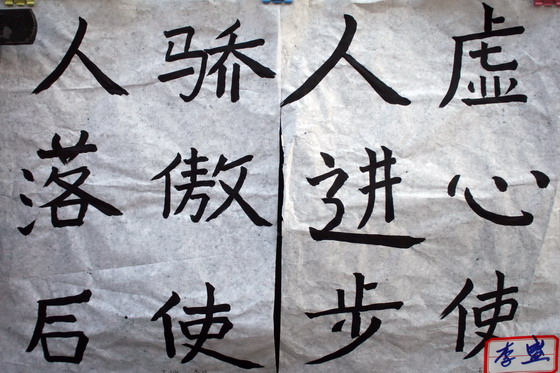 虚心使
人进步
骄傲使
人落后